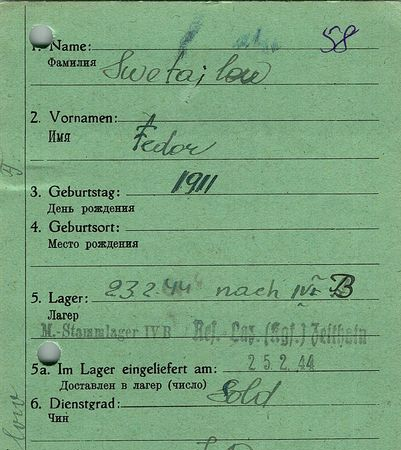 58
1. Name: Swetajlow
Фамилия
2. Vornamen: Fedor
Имя
3. Geburtstag: 1911
День рождения
4. Geburtsort:
Место рождения
5. Lager: 23.2.44 nach IV B
Лагер
M.-Stammlager IV B Res.-Laz. (Kgf.) Zeithain
5a. Im Lager eingeliefert am: 25.2.44
Доставлен в лагер (число)
6. Dienstgrad: Sold
Чин
low